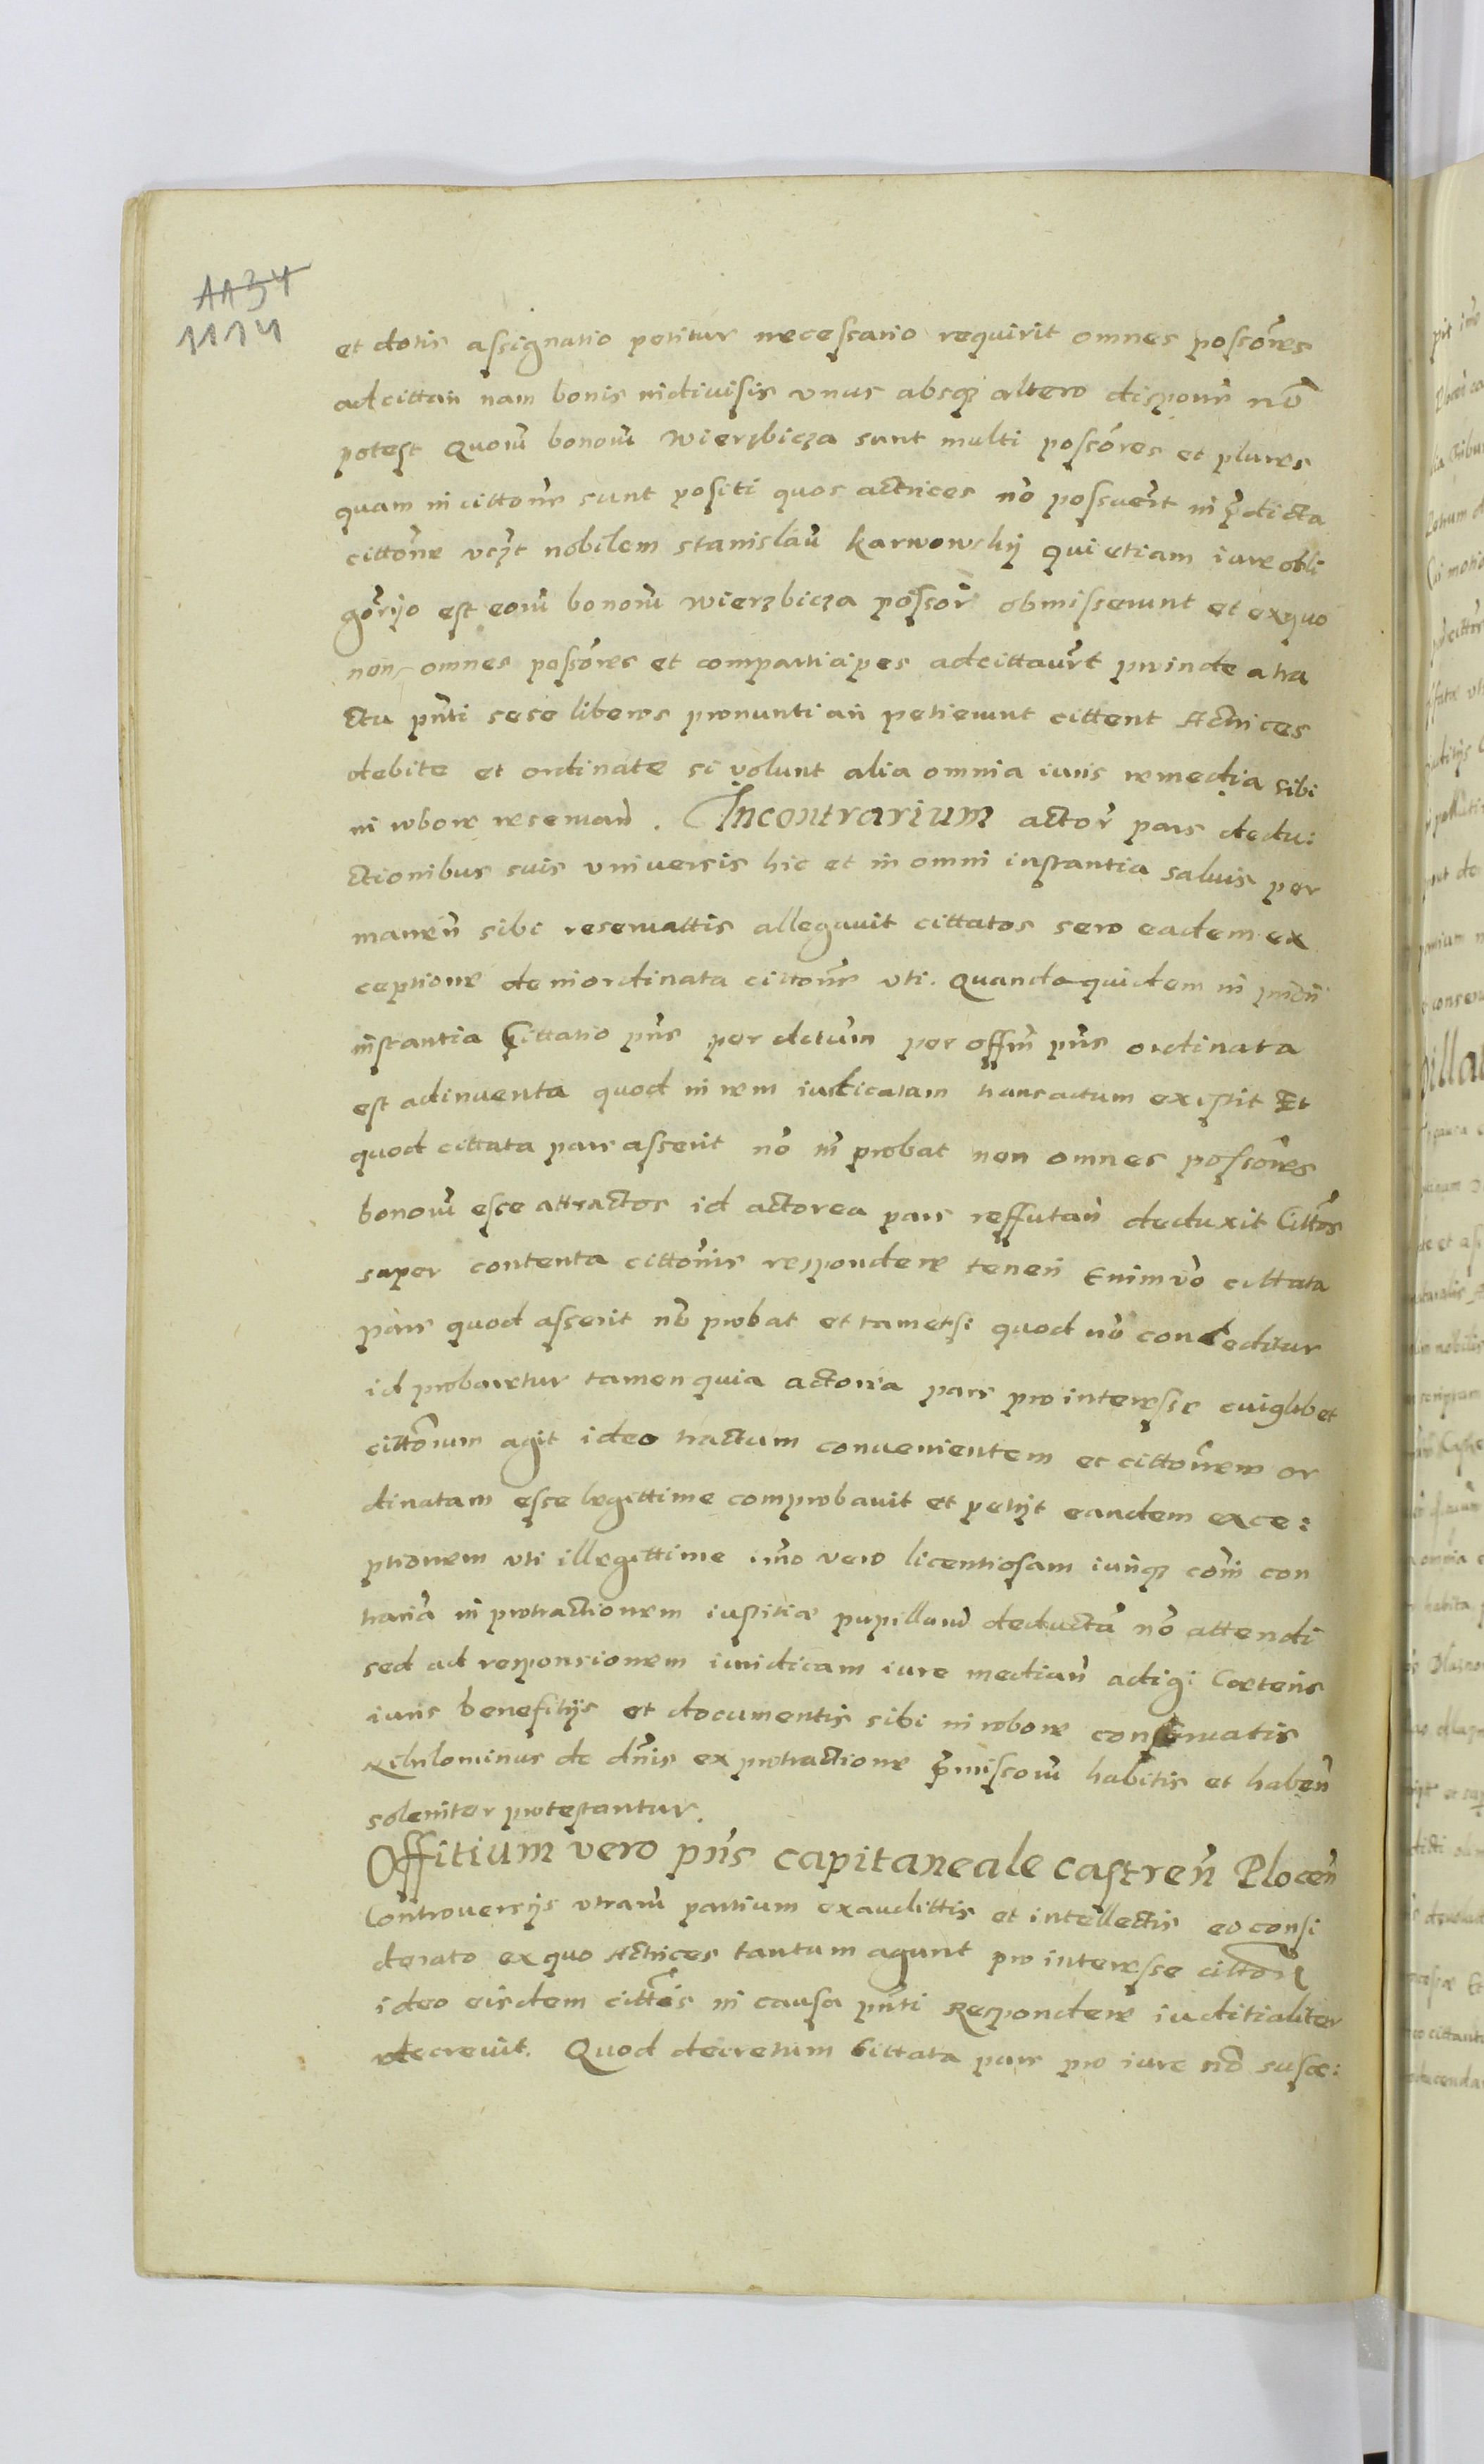 1134
1114
et dotis assignatio petitur necessario requirit omnes possores
adcittari nam bonis indivisis vnus absq altero disponere no
potest Quoru bonoru Wierzbicza sunt multi possores et plures
quam in cittone sunt positi quos actrices no possuert in pdicta
cittone vczt nobilem Stanislau Karwowskÿ qui etiam iure obli
gorijo est eoru bonoru Wierzbicza possor obmisserunt et exquo
non omnes possores et comparticipes adcittauert proinde a tra
ctu pnti sese liberos pronuntiari petierunt cittent Actrices
debite et ordinate si volunt alia omnia iuris remedia sibi
in robore reseruan. Incontrarium actor pars dedu:
ctionibus suis vniuersis hic et in omni instantia saluis per
manen sibi reseruattis allegauit cittatos sero eadem ex
ceptione de inordinata cittone vti. Quandoquidem in
instantia Cittatio pns per dctum per offm pns ordinata
est adinuenta quod in rem iudicatam transactum existit Et
quod cittata pars asserit no probat non omnes possores
bonoru esse attractos id actorea pars reffutan deduxit Cittos
super contenta cittonis respondere teneri Enimvo cittata
pars quod asserit no probat et tametsi quod no conceditur
id probaretur tamen quia actorea pars pro interesse cuiuslibet
cittorum agit ideo tractum conuenientem et cittonem or
dinatam esse legittime comprobauit et petijt eandem exce:
ptionem vti illegittime imo vero licentiosam iuriq comi con
traria in protractionem iustitiæ pupillaru deducta no attendi
sed ad responsionem iuridicam iure median adigi Cæteris
iuris benefitijs et documentis sibi in robore conseruatis
Nihilominus de dnis ex protractione pmissoru habitis et haben
soleniter protestantur.
Offitium vero pns capitaneale castren Plocen
Controuersijs vtraru partium exaudittis et intellectis eo consi
derato ex quo Actrices tantum agunt pro interesse citton
ideo eisdem cittis in causa pnti Respondere iuditialiter
decreuit. Quod decretum Cittata pars pro iure no susce: